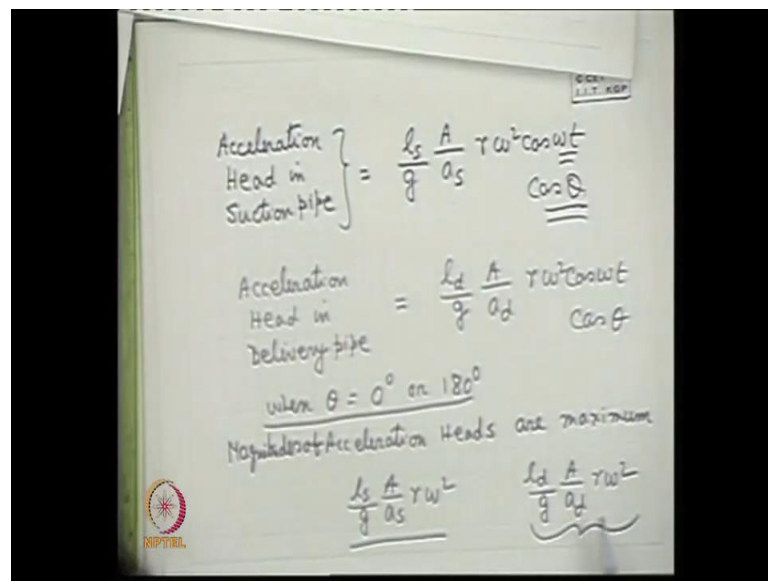 I.I.T. KGP
Acceleration
Head in
Suction pipe } = ls/g A/as rω² cos ωt
cos θ
Acceleration
Head in = ld/g A/ad rω² cos ωt
Delivery pipe cos θ
when θ = 0° or 180°
Magnitudes of Acceleration Heads are maximum
ls/g A/as rω² ld/g A/ad rω²
NPTEL